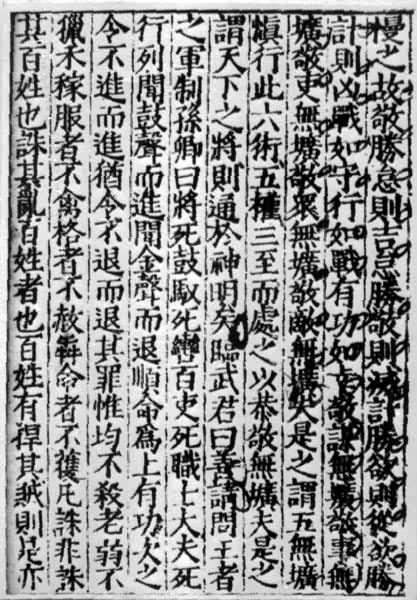 慢之故敬勝怠則吉怠勝敬則滅計勝欲則從欲勝
計則凶戰如守行如戰有功如幸敬謀無壙敬事無
壙敬吏無壙敬衆無壙敬敵無壙夫是之謂五無壙
慎行此六術五權三至而處之以恭敬無壙夫是之
謂天下之將則通於神明矣臨武君曰善請問王者
之軍制孫卿曰將死鼓馭死轡百吏死職士大夫死
行列聞鼓聲而進聞金聲而退順命爲上有功次之
令不進而進猶令不退而退其罪惟均不殺老弱不
獵禾稼服者不禽格者不赦犇命者不獲凡誅非誅
其百姓也誅其亂百姓者也百姓有捍其賊則是亦